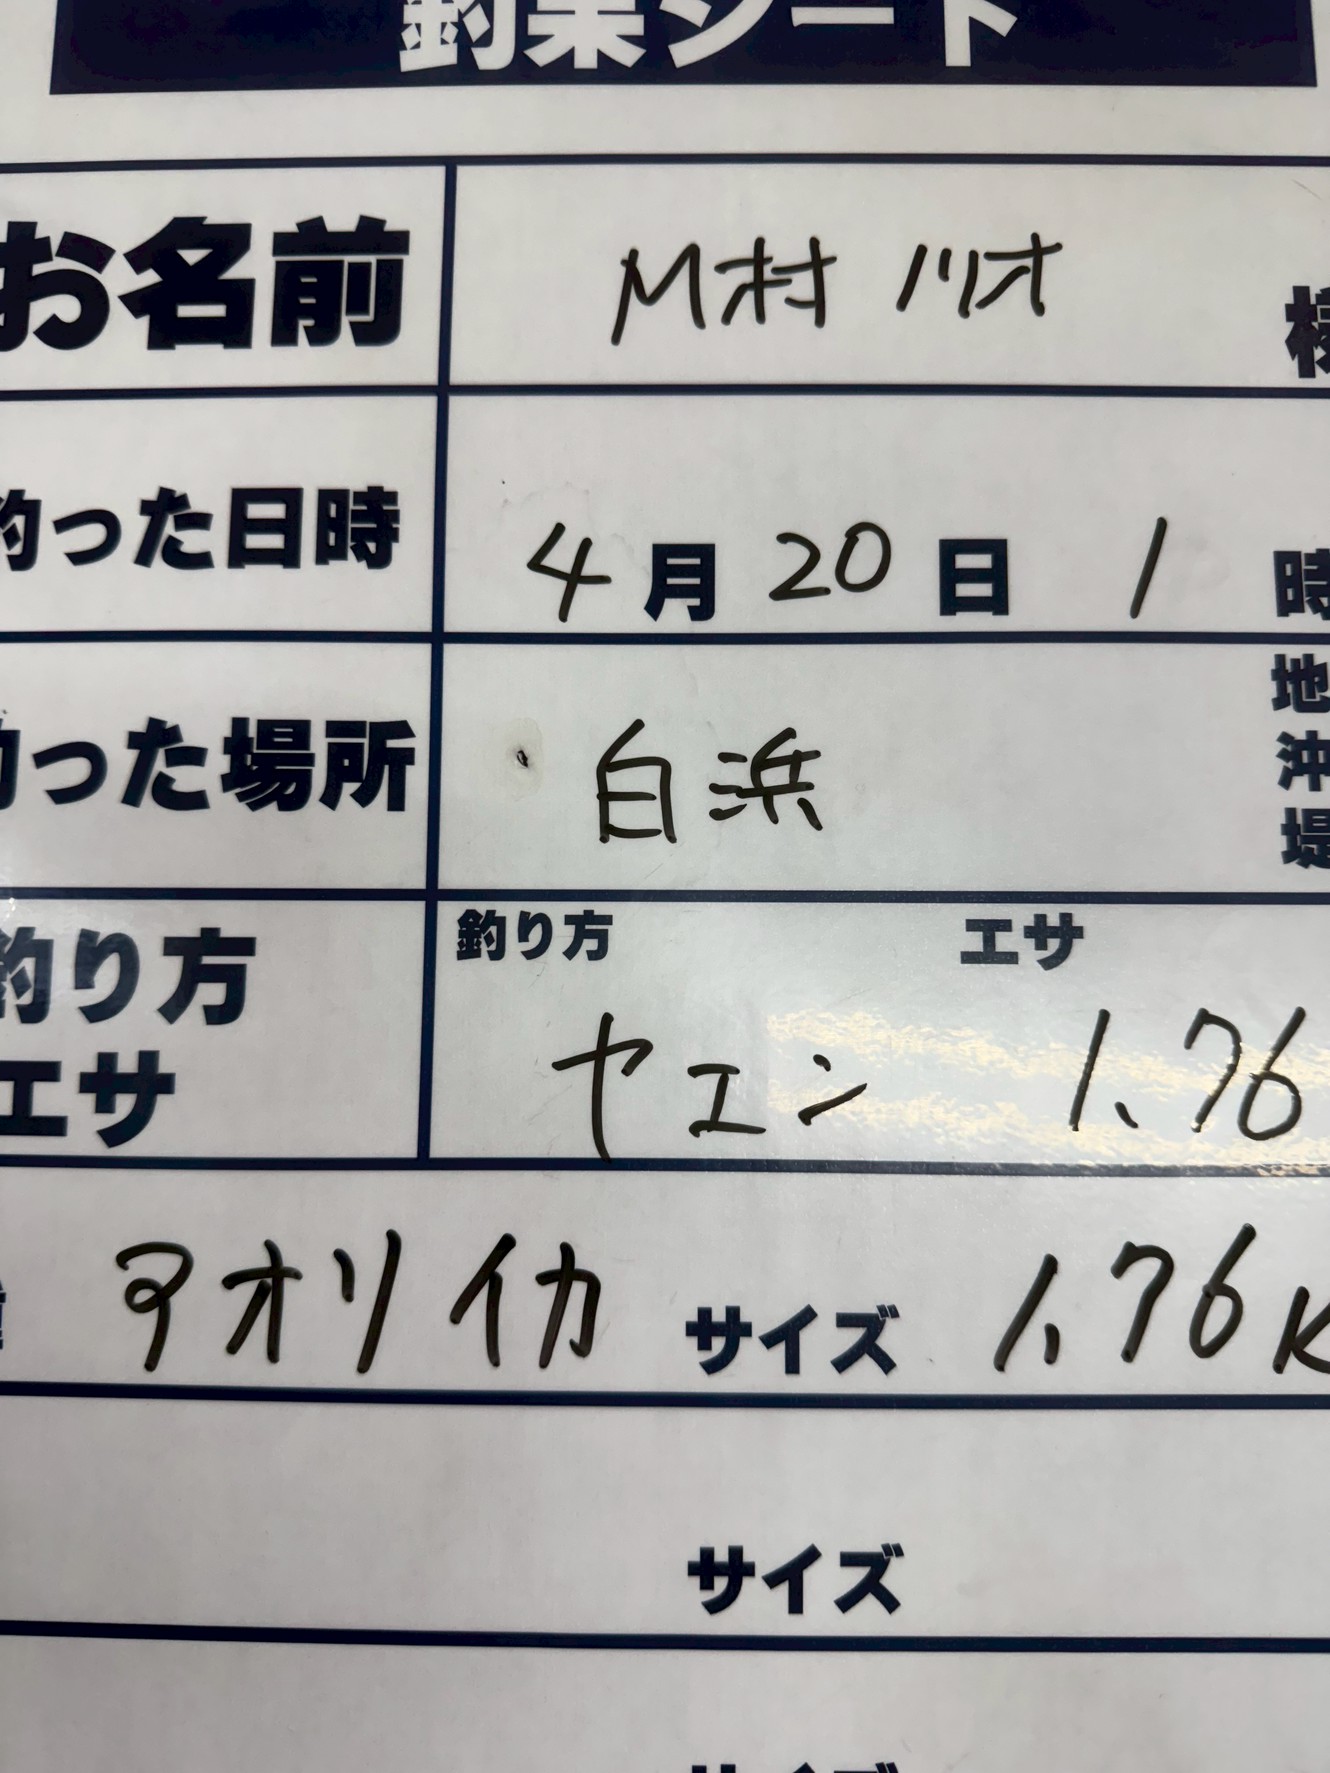 釣果シート
お名前 M村 ノリオ 様
釣った日時 4月20日 1時
釣った場所 白浜 地
沖
堤
釣り方 釣り方 エサ
エサ ヤエン 1.76
アオリイカ サイズ 1.76K
サイズ
サイズ